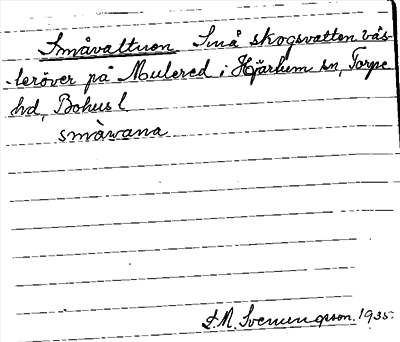 Småvattnen Små skogsvatten väs-
teröver på Mulered i Hjärtum sn, Torpe
hd, Bohusl
småvana
S.M. Svenungsson. 1935.